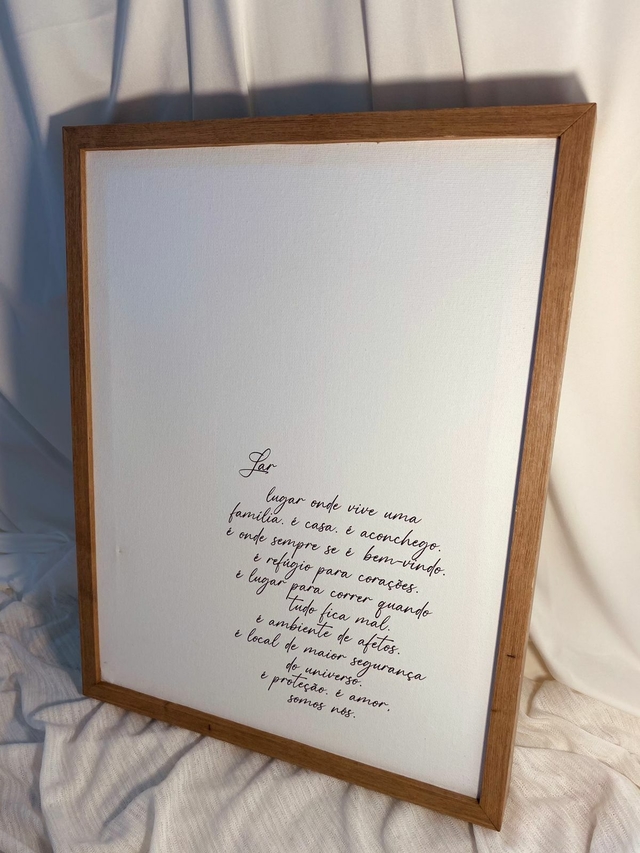 Lar
lugar onde vive uma
família. é casa. é aconchego.
é onde sempre se é bem-vindo.
é refúgio para corações.
é lugar para correr quando
tudo fica mal.
é ambiente de afetos.
é local de maior segurança
do universo.
é proteção. é amor.
somos nós.